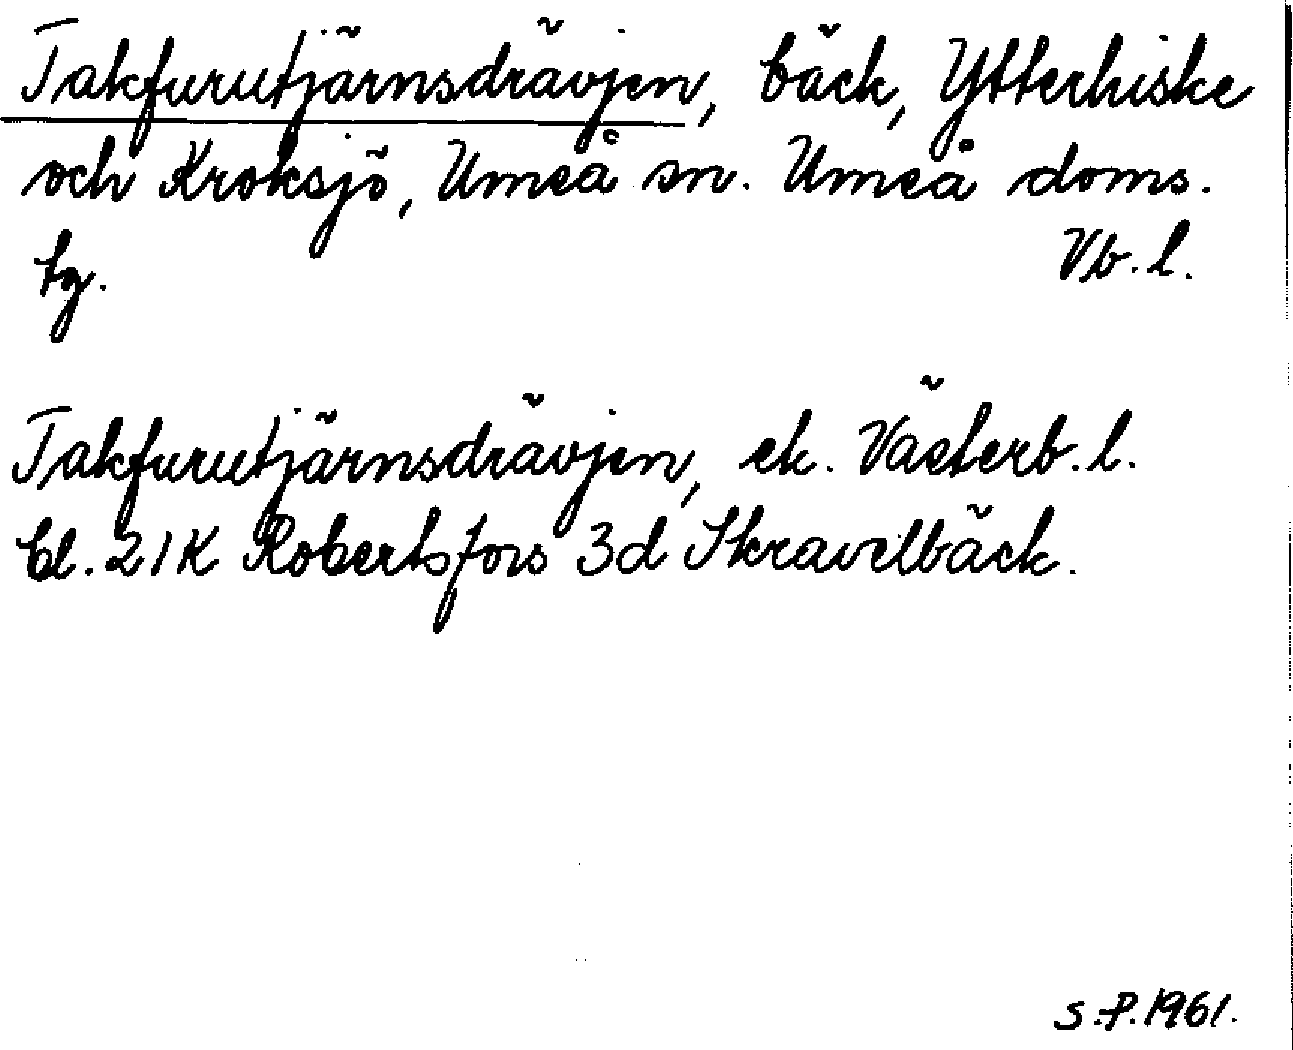 Takfurutjärnsdrävjen, bäck, Ytterhiske
och Kroksjö, Umeå sn. Umeå doms.
tg. Vb. l.
Takfurutjärnsdrävjen, ek. Västerb. l.
bl. 21K Robertsfors 3d Skravelbäck.
S.P. 1961.